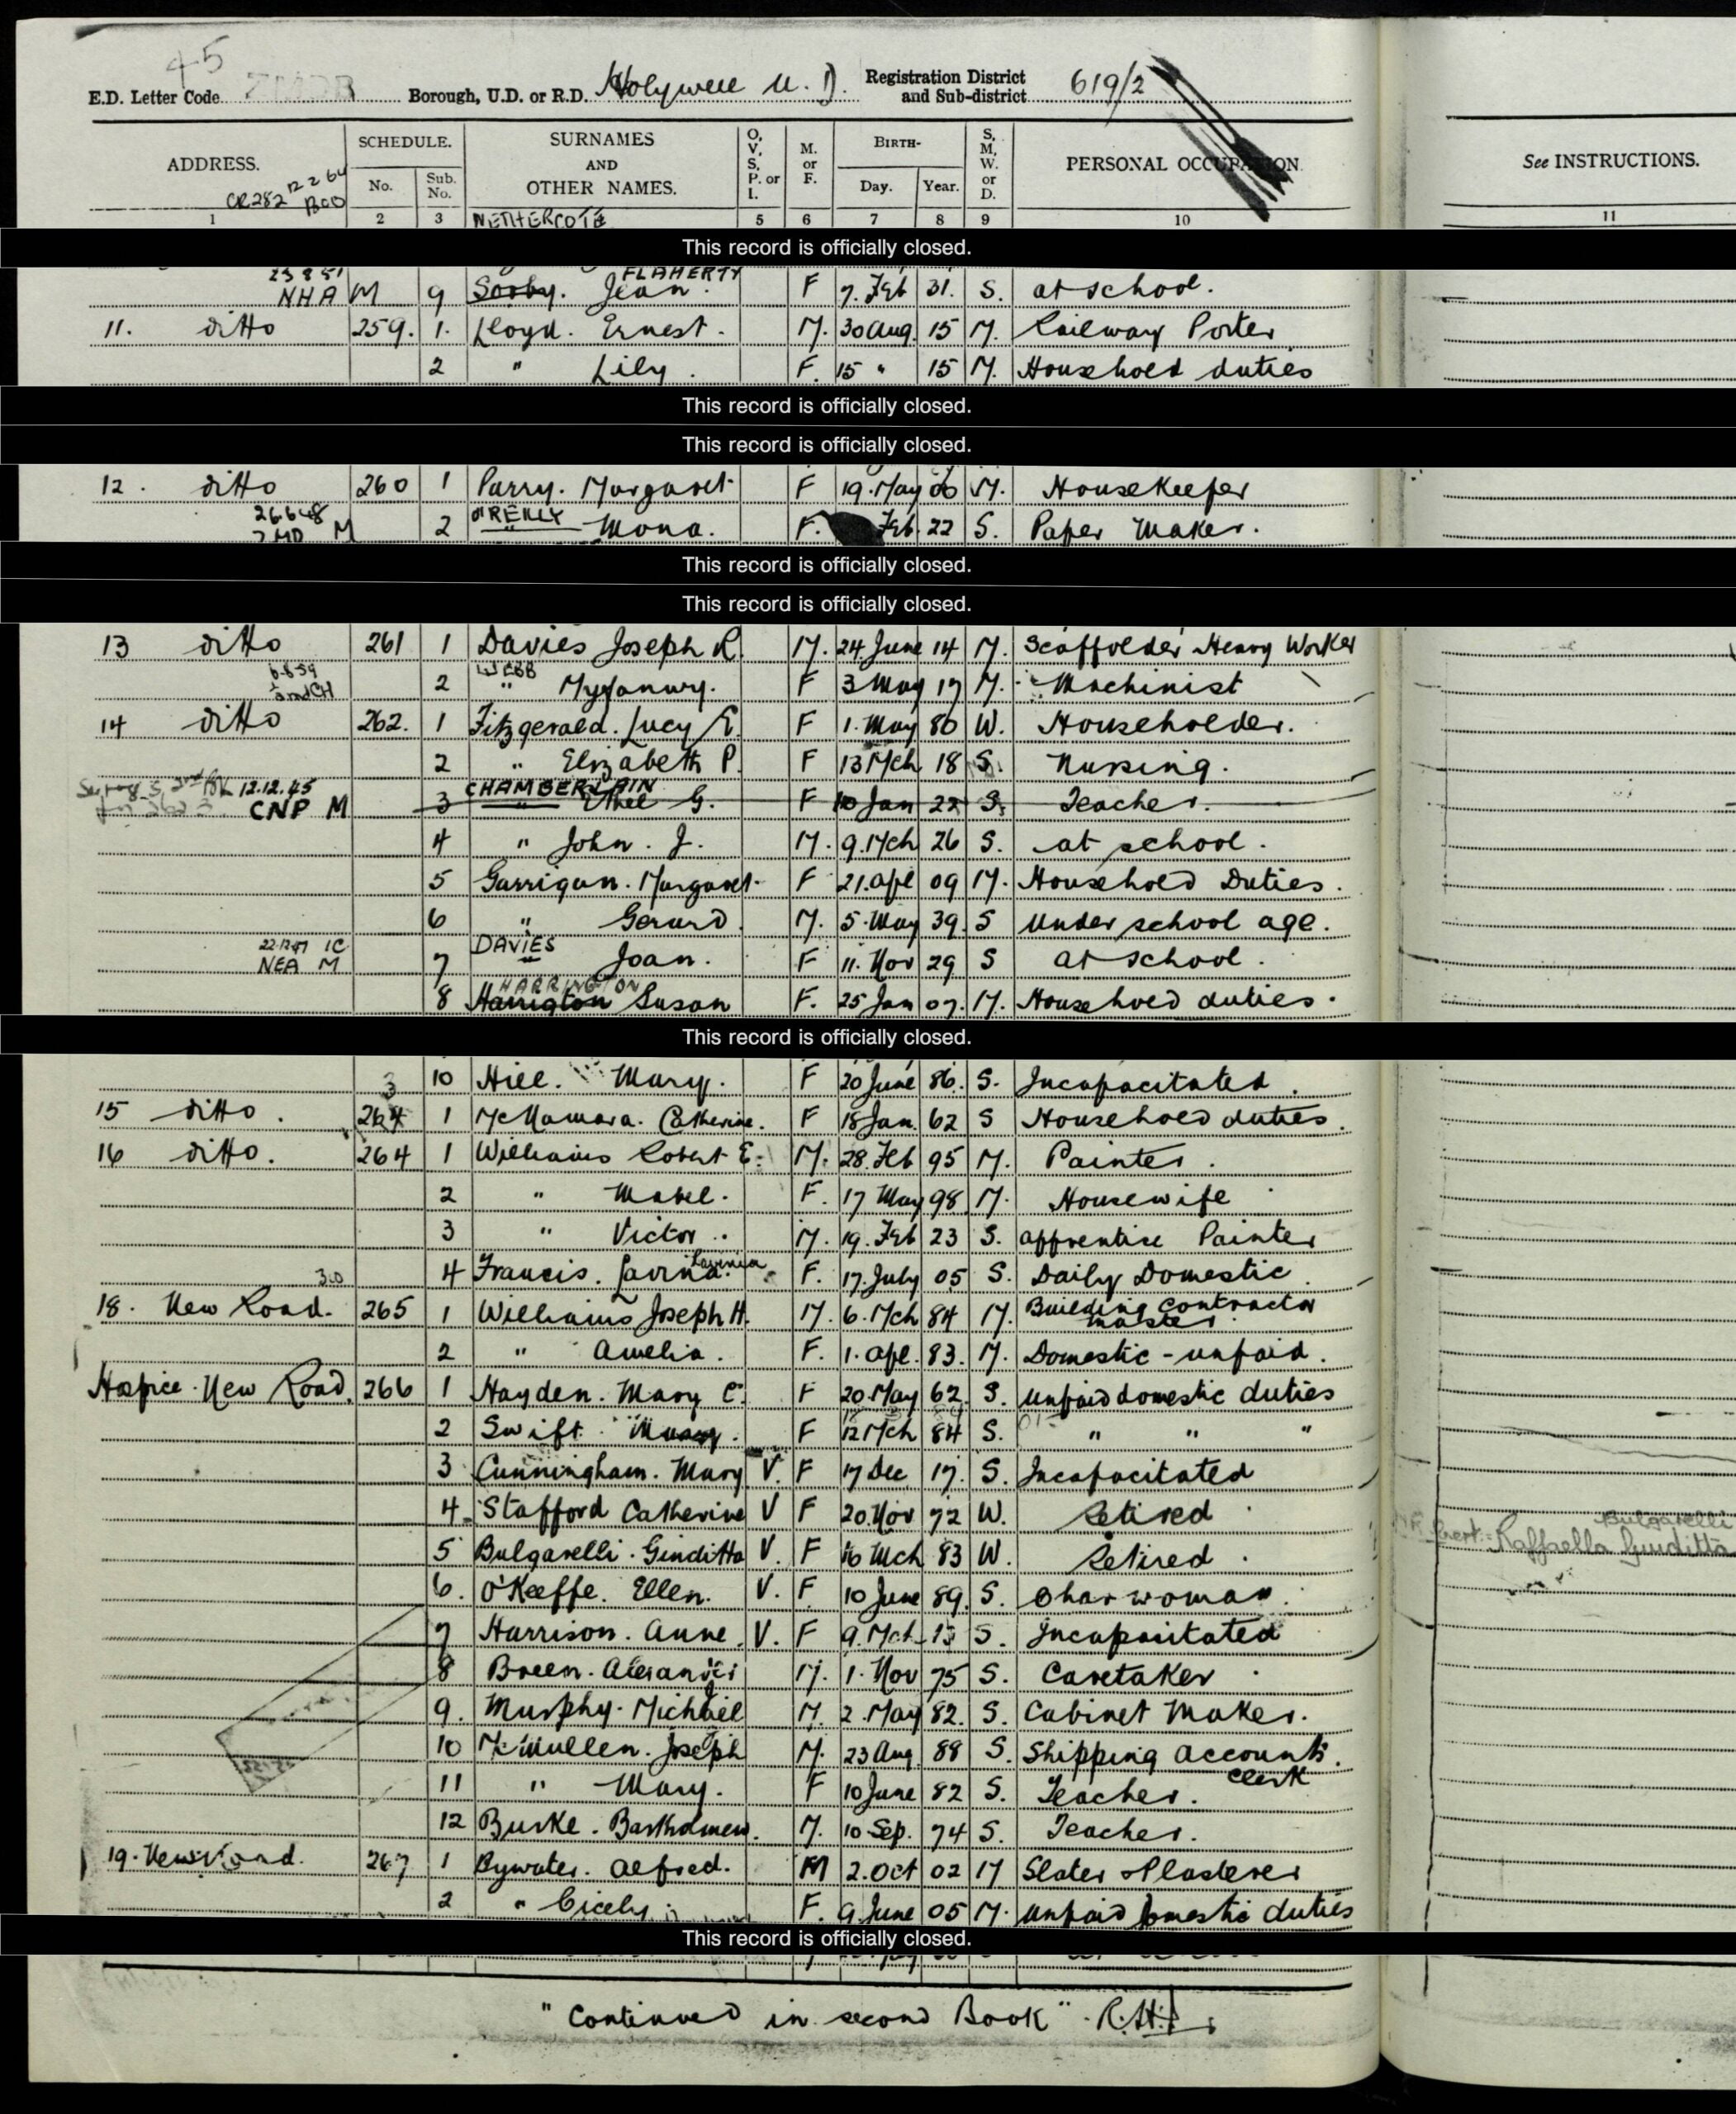 45
E.D. Letter Code Borough, U.D. or R.D. Holywell U.D. Registration District and Sub-district 619/2
ADDRESS. SCHEDULE. No. Sub. No. SURNAMES AND OTHER NAMES. O, V, S, P. or I. M. or F. BIRTH- Day. Year. S, M, W. or D. PERSONAL OCCUPATION See INSTRUCTIONS.
CR282 12 2 64 BCO
1 2 3 NETHERCOTE 5 6 7 8 9 10 11
This record is officially closed.
23 8 51 FLAHERTY
NHA M 9 Sorby. Jean. F 7. Feb 31. S. at school.
11. ditto 259. 1. Lloyd. Ernest. M. 30 Aug. 15 M. Railway Porter
2 " Lily. F. 15 " 15 M. Household duties
This record is officially closed.
This record is officially closed.
12. ditto 260 1 Parry. Margaret F 19. May 06 M. HouseKeeper
26648 O'REILLY
M 2 " Mona. F. Feb. 22 S. Paper Maker.
This record is officially closed.
This record is officially closed.
13 ditto 261 1 Davies Joseph R. M. 24 June 14 M. Scaffolder Heavy Worker
6.8.59 WEBB
2 " Myfanwy. F 3 May 17 M. Machinist
14 ditto 262. 1 Fitzgerald. Lucy E. F 1. May 80 W. Householder.
2 " Elizabeth P. F 13 Mch 18 S. Nursing.
12.12.45 CHAMBERLAIN
CNP M 3 " Ethel G. F 10 Jan 22 S. Teacher.
4 " John. J. M. 9. Mch 26 S. at school.
5 Garrigan. Margaret F 21. Apl 09 M. Household Duties.
6 " Gerard. M. 5. May 39. S under school age.
22.12.47 IC DAVIES
NEA M 7 " Joan. F 11. Nov 29 S at school.
HARRINGTON
8 Harrigton Susan F. 25 Jan 07. M. Household duties.
This record is officially closed.
10 Hill. Mary. F 20 June 86. S. Incapacitated.
3
15 ditto. 264 1 McNamara. Catherine. F 18 Jan. 62 S Household duties.
16 ditto. 264 1 Williams Robert E. M. 28. Feb 95 M. Painter.
2 " Mabel. F. 17 May 98 M. Housewife
3 " Victor. M. 19. Feb 23 S. apprentice Painter
Lavinia
4 Francis. Lavina. F. 17. July 05 S. Daily Domestic.
18. New Road. 265 1 Williams Joseph H. M. 6. Mch 84 M. Building Contractor
master.
2 " Amelia. F. 1. Apl. 83. M. Domestic - unpaid.
Hospice. New Road. 266 1 Hayden. Mary C. F 20. May 62. S. unpaid domestic duties
2 Swift. Mary. F 12 Mch 84 S. " " "
3 Cunningham. Mary V. F 17 Dec 17. S. Incapacitated
4. Stafford Catherine V F 20. Nov 72 W. Retired
Bulgarelli
5 Bulgarelli. Ginditta V. F 16 Mch 83 W. Retired. Raffaella Giuditta
6. O'Keeffe. Ellen. V. F. 10 June 89. S. Charwoman.
7 Harrison. Anne. V. F 9. Mch 13 S. Incapacitated
8 Breen. M. 1. Nov 75 S. Caretaker
9. Murphy. Michael M. 2. May 82. S. Cabinet Maker.
10 McMullen. Joseph M. 23 Aug. 88 S. Shipping Accounts.
Clerk
11 " Mary. F 10 June 82 S. Teacher.
12 Burke. Bartholmew. M. 10 Sep. 74 S. Teacher.
19. New Road. 267 1 Bywater. Alfred. M 2. Oct 02 M Slater & Plasterer
2 " Cicely F. 9 June 05 M. unpaid domestic duties
This record is officially closed.
"Continued in second Book".